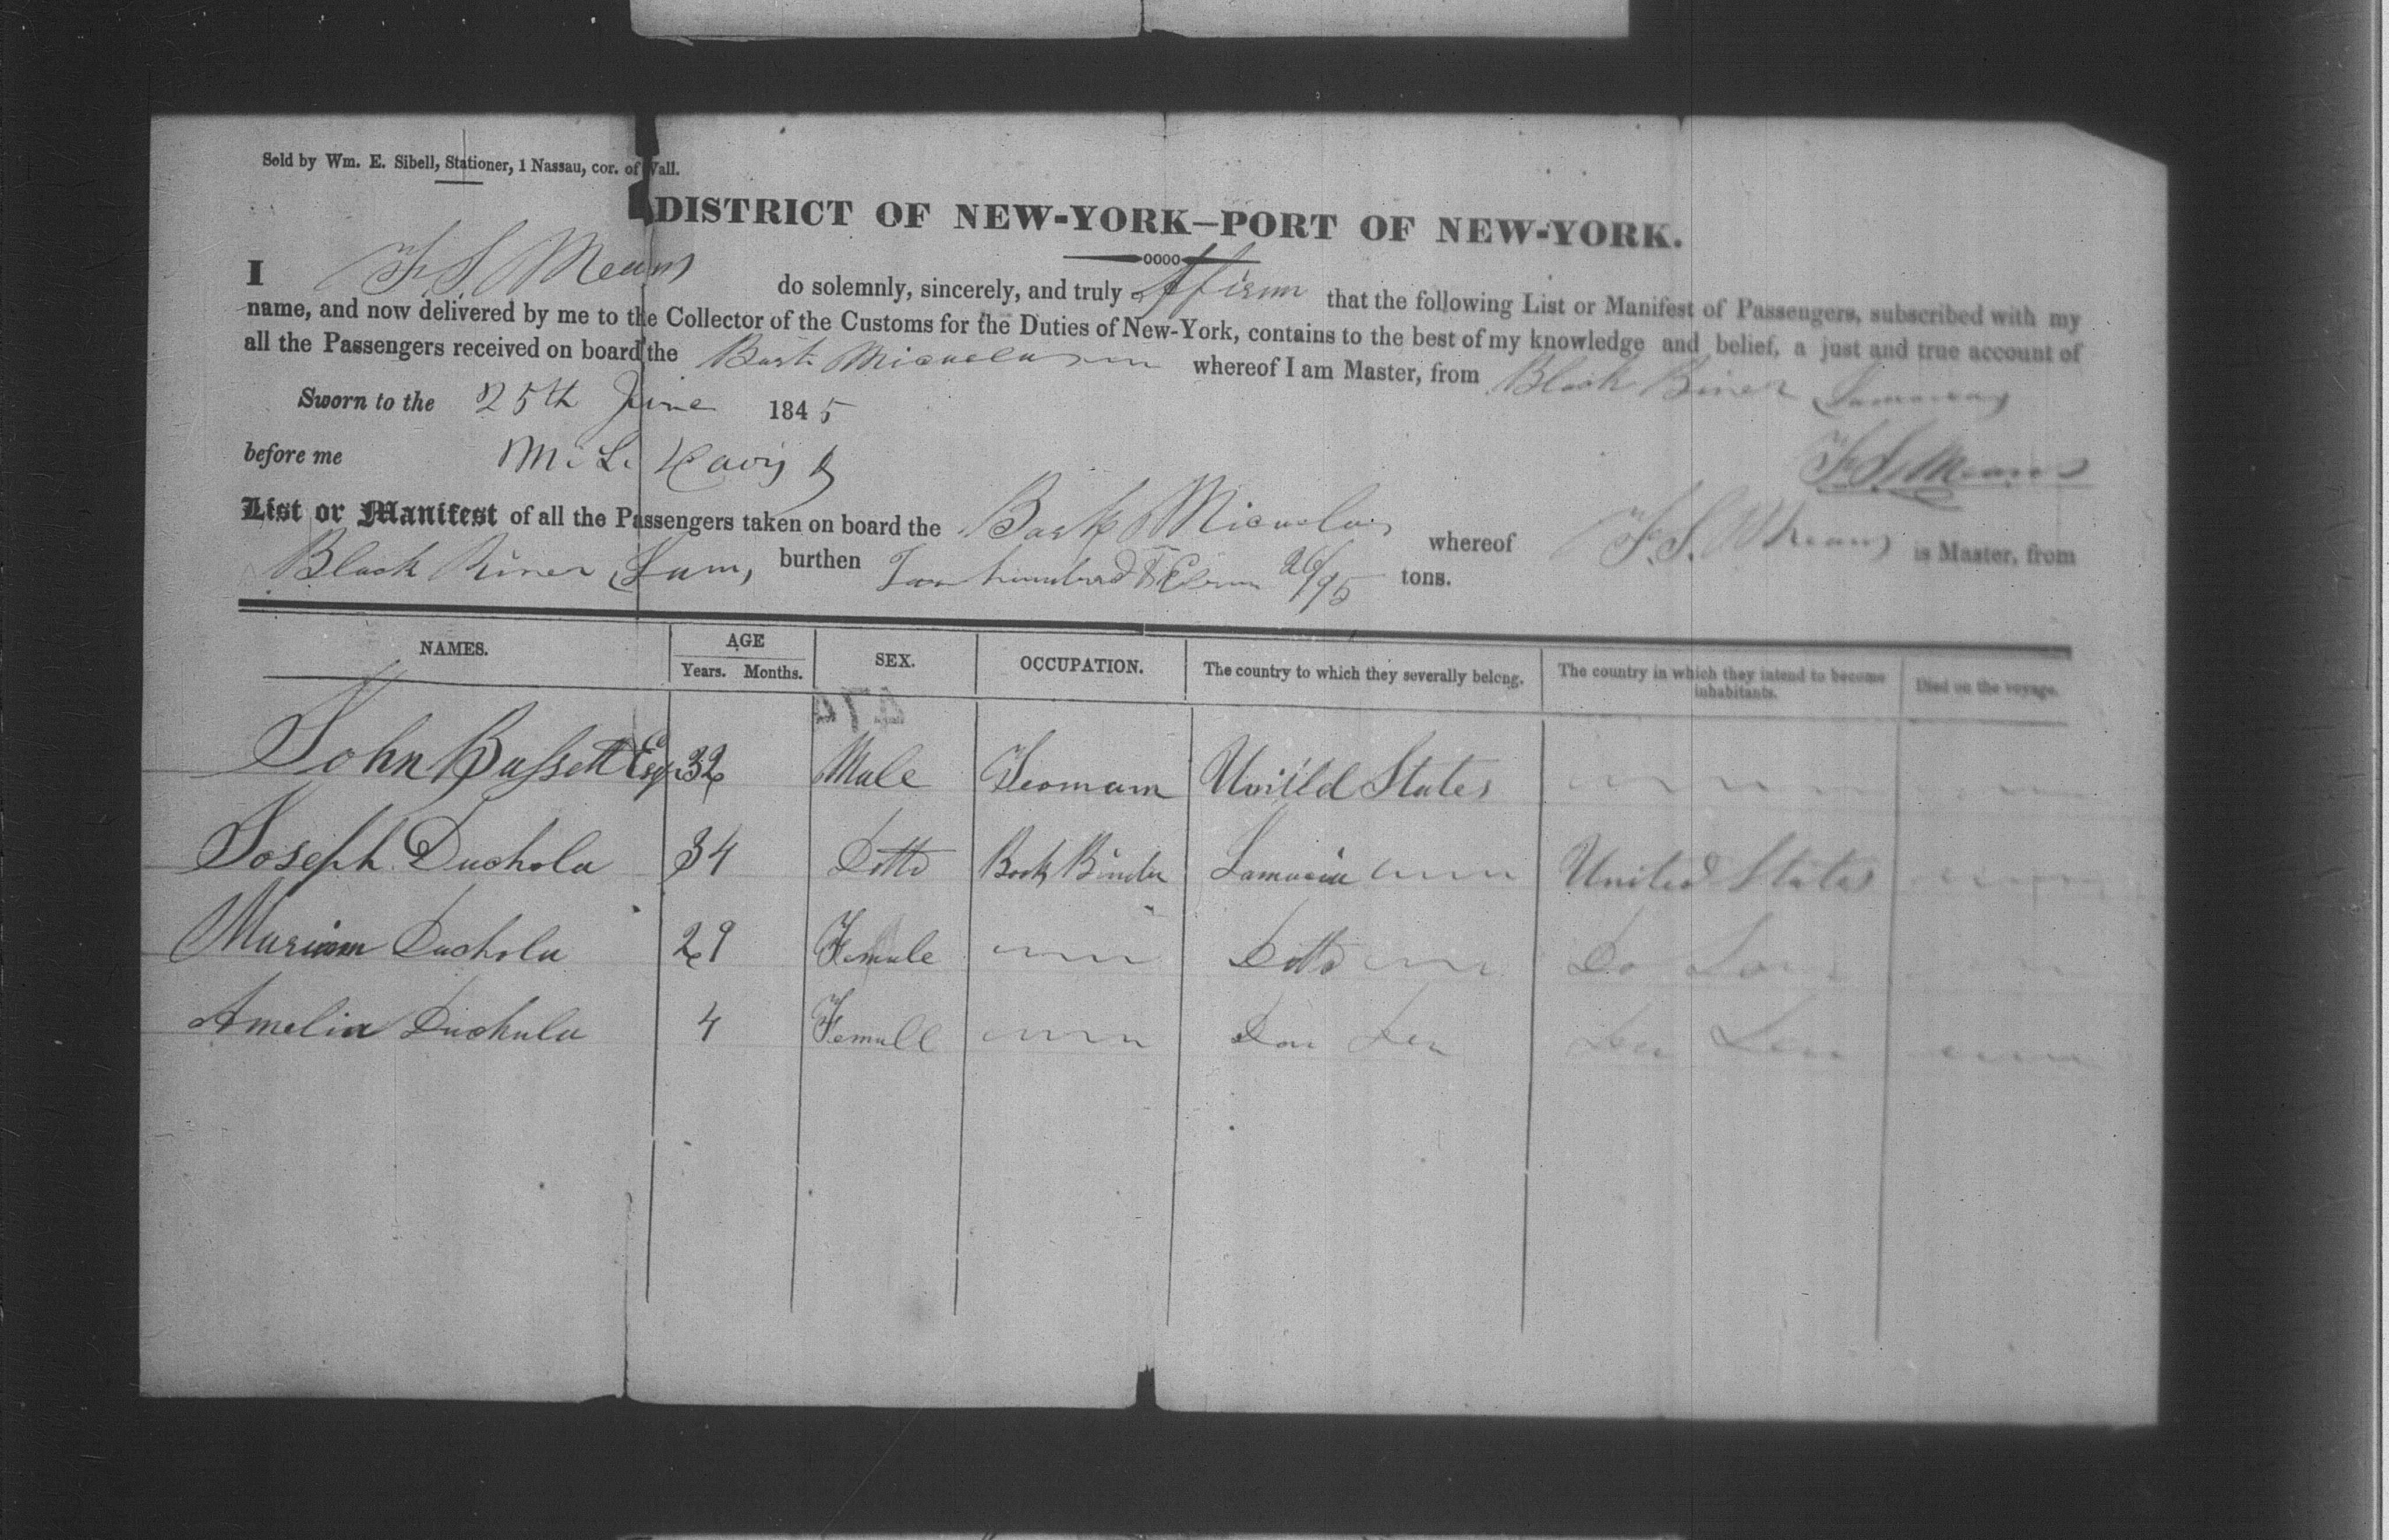 Sold by Wm. E. Sibell, Stationer, 1 Nassau, cor. of Wall.
DISTRICT OF NEW-YORK—PORT OF NEW-YORK.
I F. S. Means do solemnly, sincerely, and truly Affirm that the following List or Manifest of Passengers, subscribed with my
name, and now delivered by me to the Collector of the Customs for the Duties of New-York, contains to the best of my knowledge and belief, a just and true account of
all the Passengers received on board the Bark whereof I am Master, from Black River Jamaica
Sworn to the 25th June 1845
before me M. L. Davis
F. S. Means
List or Manifest of all the Passengers taken on board the Bark whereof F. S. Means is Master, from
Black River, Jam, burthen Two hundred & Eleven 26/95 tons.
NAMES. AGE SEX. OCCUPATION. The country to which they severally belong. The country in which they intend to become inhabitants. Died on the voyage.
Years. Months.
474
John Bassett Esqr 32 Male Yeomam United States
Joseph Duchola 34 Ditto Book Binder Jamacia United States
Muriam Duchola 29 Female Ditto Do
Amelia Duchula 4 Female